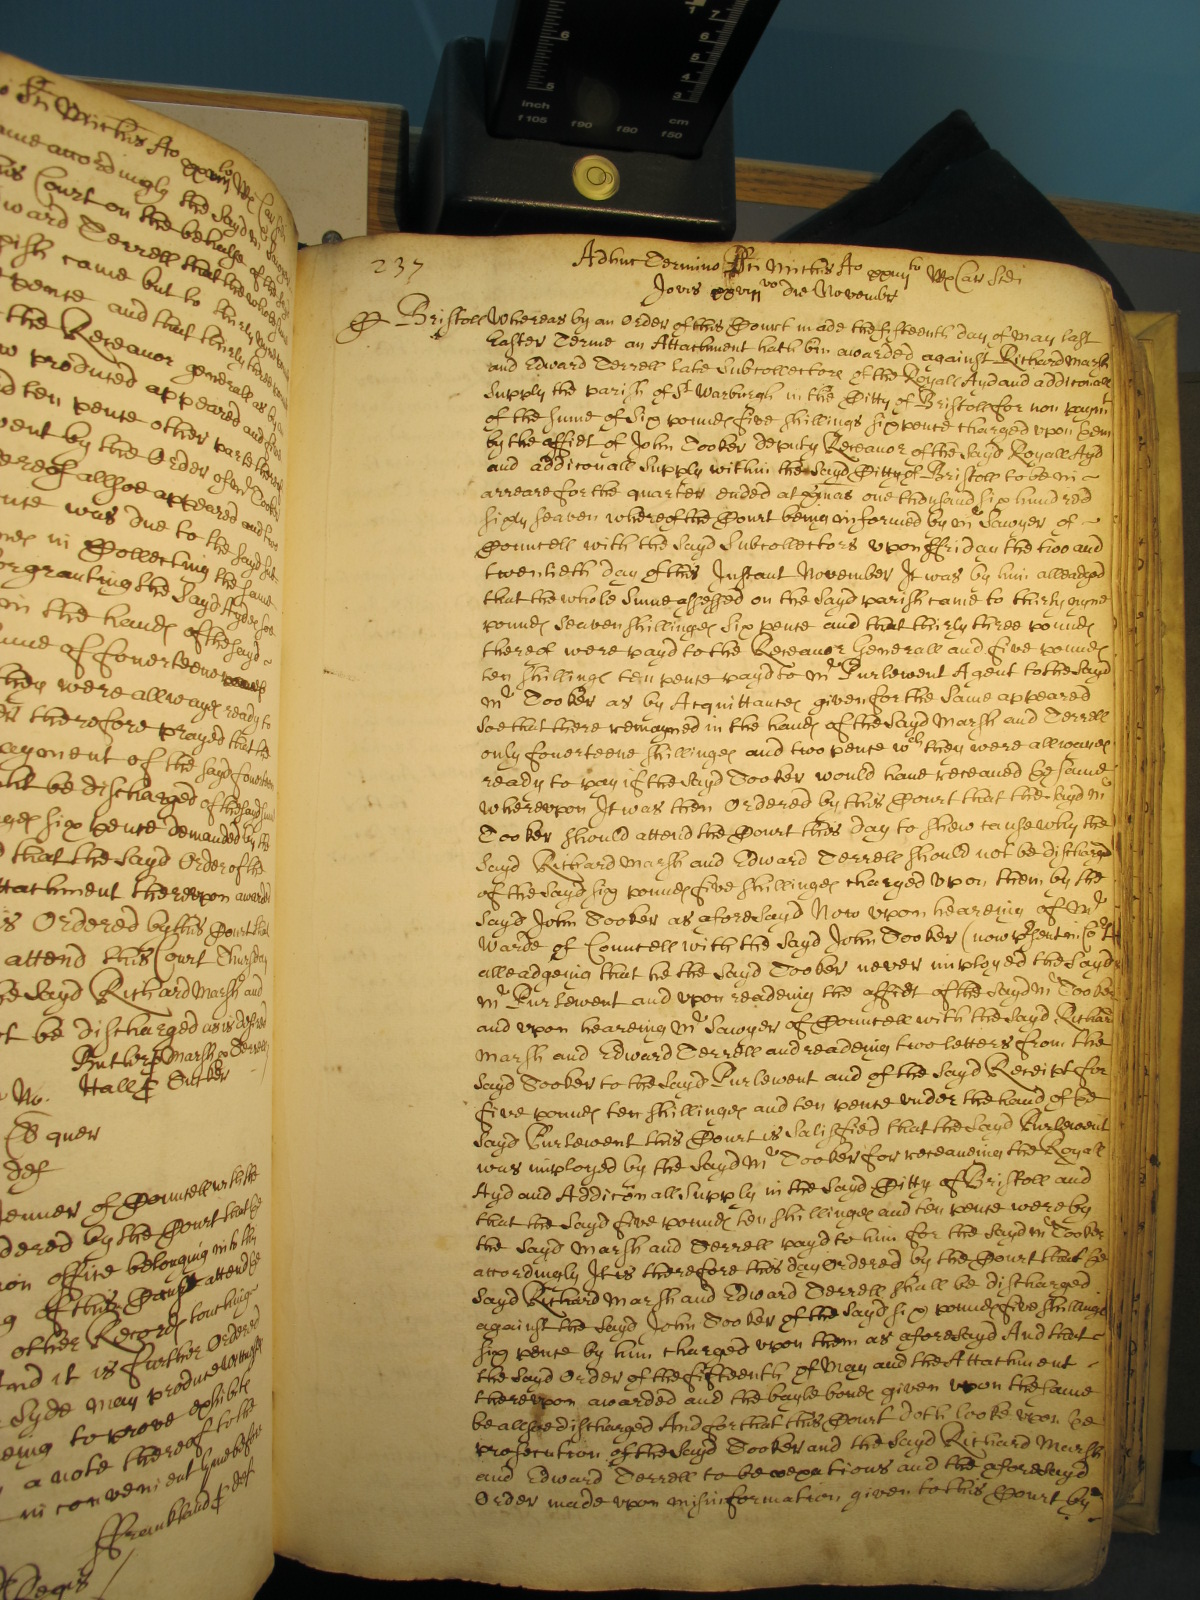 Sti Michis Ao xxiiijto Rs Car Sedi
ame accordingly the sayd mr Sawyer
is Court on the behalfe of the sayd
ward Terrell that the whole summe
rish came but to thirty nyne
pence and that thirty three
the Receauor generall as by
w produced appeared and
d ten pence other parte thereof
went by the Order of mr Tooker
ereof allsoe appeared and two
ence was due to the sayd
nes in Collecting the same
or granting the Sayd Ayde
in the handes of the sayd
ume of fourteene
they were allwayes ready to
es therefore prayed that the
ayment of the sayd fourteene
ht be discharged of the sayd
ges six pence demanded by the
d that the sayd Order of the
ttachment thereupon awarded
is Ordered by this Court that
attend this Court Thursday
he sayd Richard Marsh and
t be discharged as is desired
Butler p Marsh & Terrell
Hall p Tucker
No.
quer
def
enner of Councell with the
dered by the Court that the
ion office belonging unto this
g of this Court attend the
other Records touching
And it is further Ordered
Syde may produce
eing to prove exhibite
a note thereof to the
in convenient tyme before
Frankland p def
Regis
237
Adhuc Termino Sti Michis Ao xxiiijto Rs Car Sedi
Jovis xxviijvo die Novembr
Bristoll Whereas by an Order of this Court made the fifteenth day of May last
Easter Terme an Attachment hath bin awarded against Richard Marsh
and Edward Terrell late Subcollectors of the Royall Ayd and addiconall
Supply the parish of St Warburgh in the Citty of Bristoll for non paymt
of the sume of Six poundes five shillings six pence charged upon them
by the affidt of John Tooker deputy Receauor of the sayd Royall Ayd
and addiconall Supply within the sayd Citty of Bristoll to be in
arreare for the quarter ended at xpmas one thousand six hundred
sixty seaven whereof the Court being informed by mr Sawyer of
Councell with the sayd Subcollectors upon ffriday the two and
twentieth day of this Instant November It was by him alleadged
that the whole Sume assessed on the sayd parish came to thirty nyne
poundes seaven shillinges Six pence and that thirty three poundes
thereof were payd to the Receauor Generall and five poundes
ten shillings ten pence payd to mr Purlewent Agent to the sayd
mr Tooker as by Acquittances given for the same appeared
Soe that there remayned in the handes of the sayd Marsh and Terrell
only fourteene shillinges and two pence wch they were allwayes
ready to pay if the sayd Tooker would have receaued the same
whereupon It was then Ordered by this Court that the sayd mr
Tooker should attend the Court this day to shew cause why the
sayd Richard Marsh and Edward Terrell should not be discharged
of the sayd six poundes five shillinges charged upon them by the
sayd John Tooker as aforesayd Now upon heareing of mr
Warde of Councell with the sayd John Tooker (now present in Cort)
alleadgeing that he the sayd Tooker never imployed the sayd
mr Purlewent and upon readeing the affidt of the sayd mr Tooker
and upon heareing mr Sawyer of Councell with the sayd Richard
Marsh and Edward Terrell and readeing two letters from the
sayd Tooker to the sayd Purlewent and of the sayd Receipt for
five poundes ten shillinges and ten pence under the hand of the
sayd Purlewent this Court is Satisfied that the sayd Purlewent
was imployed by the sayd mr Tooker for receaueing the Royall
Ayd and Addiconall Supply in the sayd Citty of Bristoll and
that the sayd five poundes ten shillinges and ten pence were by
the sayd Marsh and Terrell payd to him for the sayd mr Tooker
accordingly It is therefore this day Ordered by the Court that the
sayd Richard Marsh and Edward Terrell shall be discharged
against the sayd John Tooker of the sayd six poundes five shillings
six pence by him charged upon them as aforesayd And that
the sayd Order of the fifteenth of May and the Attachment
thereupon awarded and the bayle bondes given upon the same
be allsoe discharged And for that this Court doth looke upon the
prosecution of the sayd Tooker and the sayd Richard Marsh
and Edward Terrell to be vexatious and the aforesayd
Order made upon misinformation given to this Court by